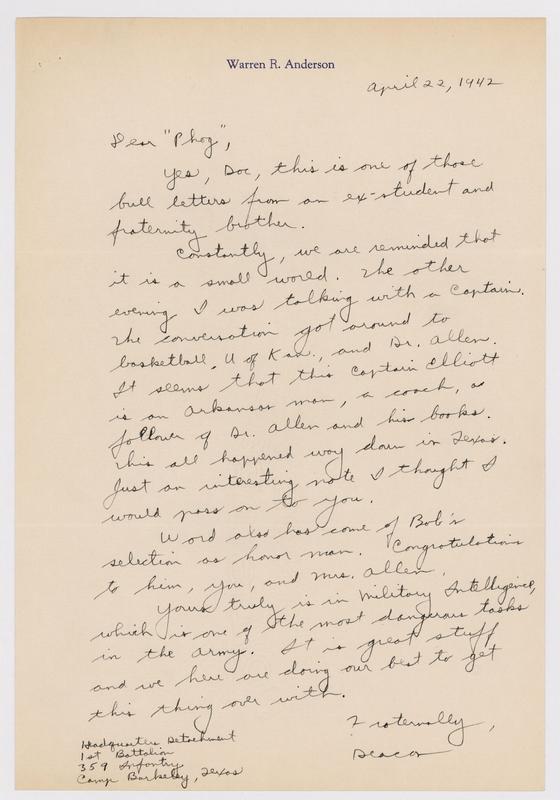 Warren R. Anderson
April 22, 1942
Dear "Phog",
Yes, Doc, this is one of those
bull letters from an ex-student and
fraternity brother.
Constantly, we are reminded that
it is a small world. The other
evening I was talking with a Captain.
The conversation got around to
basketball, U of Kan., and Dr. Allen.
It seems that this Captain Elliott
is an Arkansas man, a coach, a
follower of Dr. Allen and his books.
This all happened way down in Texas.
Just an interesting note I thought I
would pass on to you.
Word also has come of Bob's
selection as honor man. Congratulations
to him, you, and Mrs. Allen.
Yours truly is in Military Intelligence,
which is one of the most dangerous tasks
in the army. It is great stuff
and we here are doing our best to get
this thing over with.
Fraternally,
Deacon
Headquarters Detachment
1st Battalion
359 Infantry
Camp Barkeley, Texas